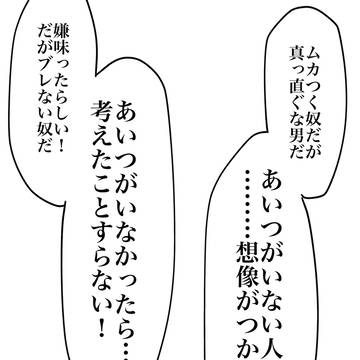 ムカつく奴だが
真っ直ぐな男だ
あいつがいない人
………想像がつか
あいつがいなかったら…
考えたことすらない！
嫌味ったらしい！
だがブレない奴だ